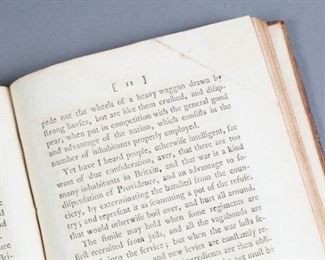 [ 21 ]
pede not the wheels of a heavy waggon drawn by
ſtrong horſes, but are like them cruſhed, and diſap-
pear, when put in competition with the general good
and advantage of the nation, which conſiſts in the
number of inhabitants properly employed.
Yet have I heard people, otherwiſe intelligent, for
want of due conſideration, aver, that there are too
many inhabitants in Britain, and that war is a kind
diſpenſation of Providence, and an advantage to ſo-
ciety, by exterminating the banditti from the coun-
try; and repreſent it as ſcumming a pot of the refuſe,
that would otherwiſe boil over, and hurt all around.
The ſimile may hold when ſome regiments are
firſt recruited from jails, and all the vagabonds are
into the ſervice; but when the war laſts ſe-
and new levies are conſtantly re-
ingredients are then obli-